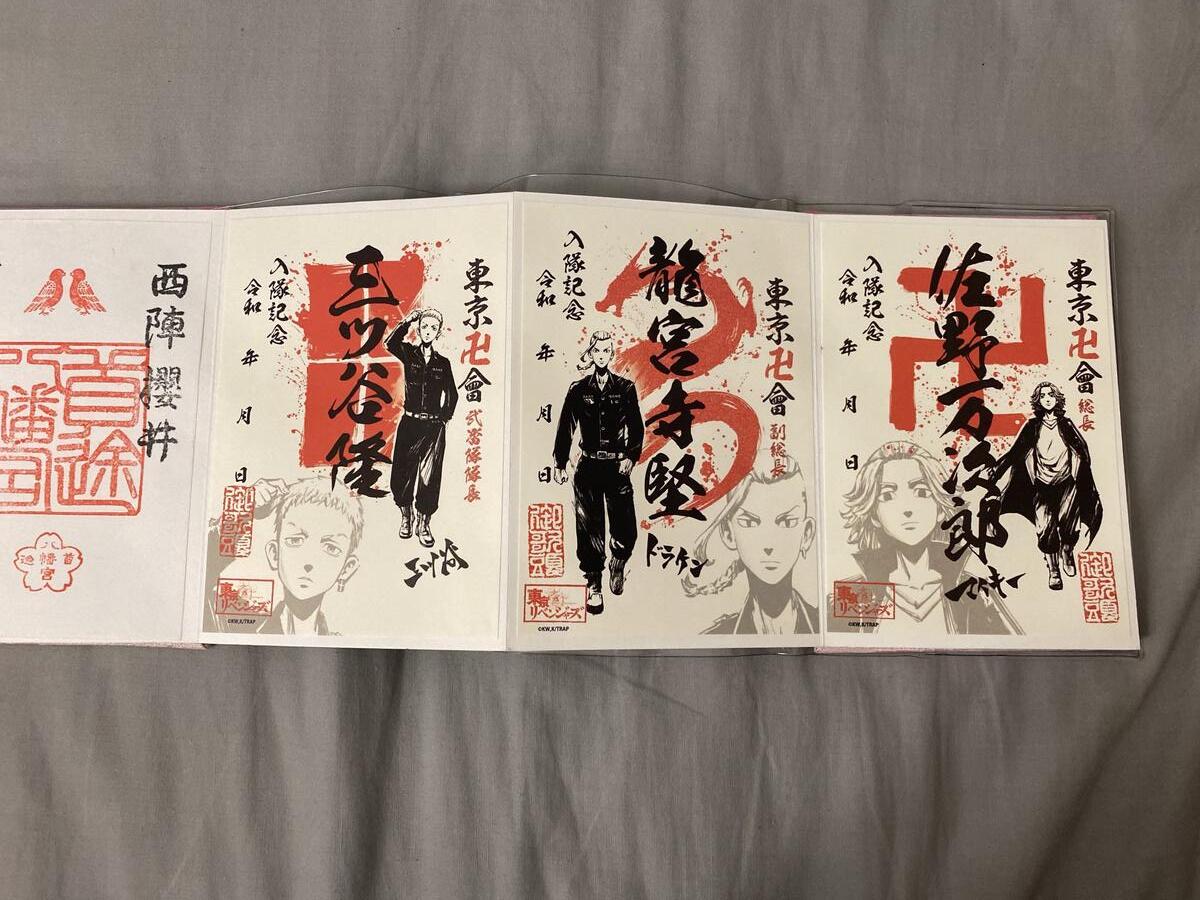 東京卍會 総長
佐野万次郎
マイキー
入隊記念
令和 年 月 日
東京卍リベンジャーズ
©KW,K/TRAP
東京卍會 副総長
龍宮寺堅
ドラケン
入隊記念
令和 年 月 日
東京卍リベンジャーズ
©KW,K/TRAP
東京卍會 弐番隊隊長
三ツ谷隆
三ツ谷
入隊記念
令和 年 月 日
東京卍リベンジャーズ
©KW,K/TRAP
西陣櫻井
首途
八幡宮
首途八幡宮